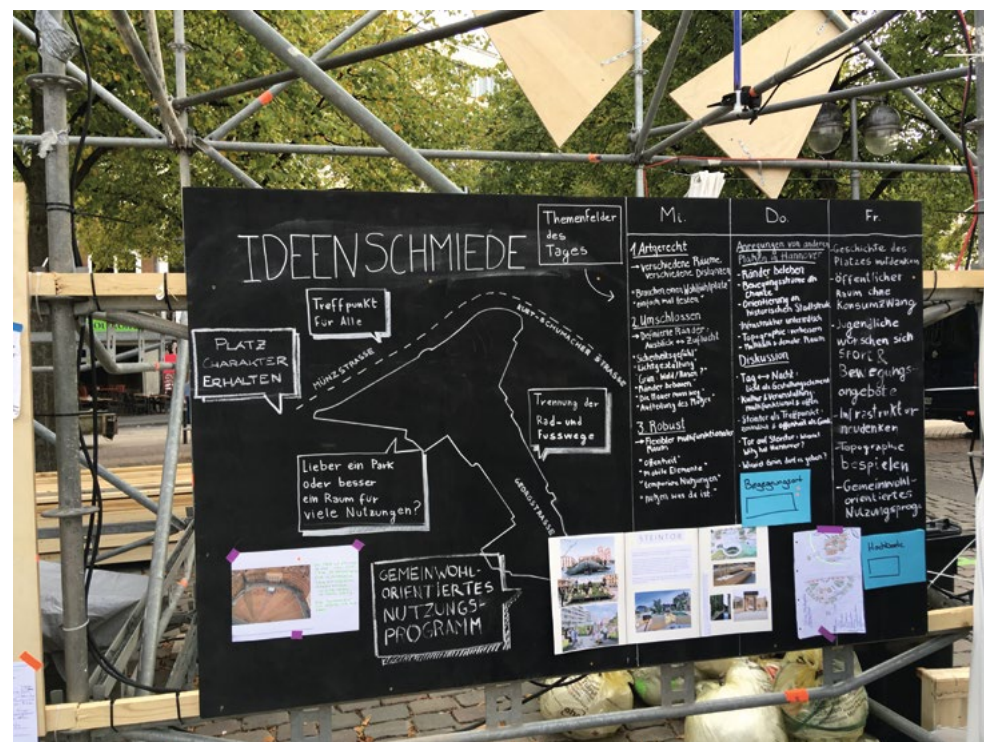 IDEENSCHMIEDE
Themenfelder
des
Tages
Treffpunkt
Für Alle
PLATZ
CHARAKTER
ERHALTEN
MÜNZSTRASSE
KURT-SCHUMACHER STRASSE
Trennung der
Rad- und
Fusswege
Lieber ein Park
oder besser
ein Raum für
viele Nutzungen?
GEORGSTRASSE
GEMEINWOHL-
ORIENTIERTES
NUTZUNGS-
PROGRAMM
Mi.
1. Artgerecht
→ verschiedene Räume,
verschiedene
"einfach mal testen"
2. Umschlossen
→ Definierte Ränder:
Ausblick ↔ Zuflucht
"Sicherheitsgefühl"
"Lichtgestaltung"
3. Robust
→ Flexibler multifunktionaler
Raum
"Offenheit"
"Mobile Elemente"
"temporäre Nutzungen"
"nutzen was da ist"
Do.
Anregungen von anderen
Plätzen in Hannover
- Ränder beleben
- Bewegungsströme als
Chance
- Orientierung an
historischen
- Infrastruktur unterirdisch
- Topographie verbessern
Diskussion
- Tag ↔ Nacht:
Licht als Gestaltungselement
- Kultur & Veranstaltung
multifunktional & offen
- Steintor als Treffpunkt:
Begegnungsort
Fr.
- Geschichte des
Platzes mitdenken
- öffentlicher
Raum ohne
Konsumzwang
- Jugendliche
wünschen sich
Sport &
Bewegungs-
angebote
- Infrastruktur
neudenken
- Topographie
bespielen
- Gemeinwohl-
orientiertes
Nutzungsprog.
STEINTOR